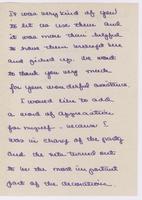 It was very kind of you
to let us use them and
it was more than helpful
to have them brought here
and picked up. We want
to thank you very much
for your wonderful assistance.
I would like to add
a word of appreciation
for myself - because I
was in charge of the party
and the sets turned out
to be the most important
part of the decorations.